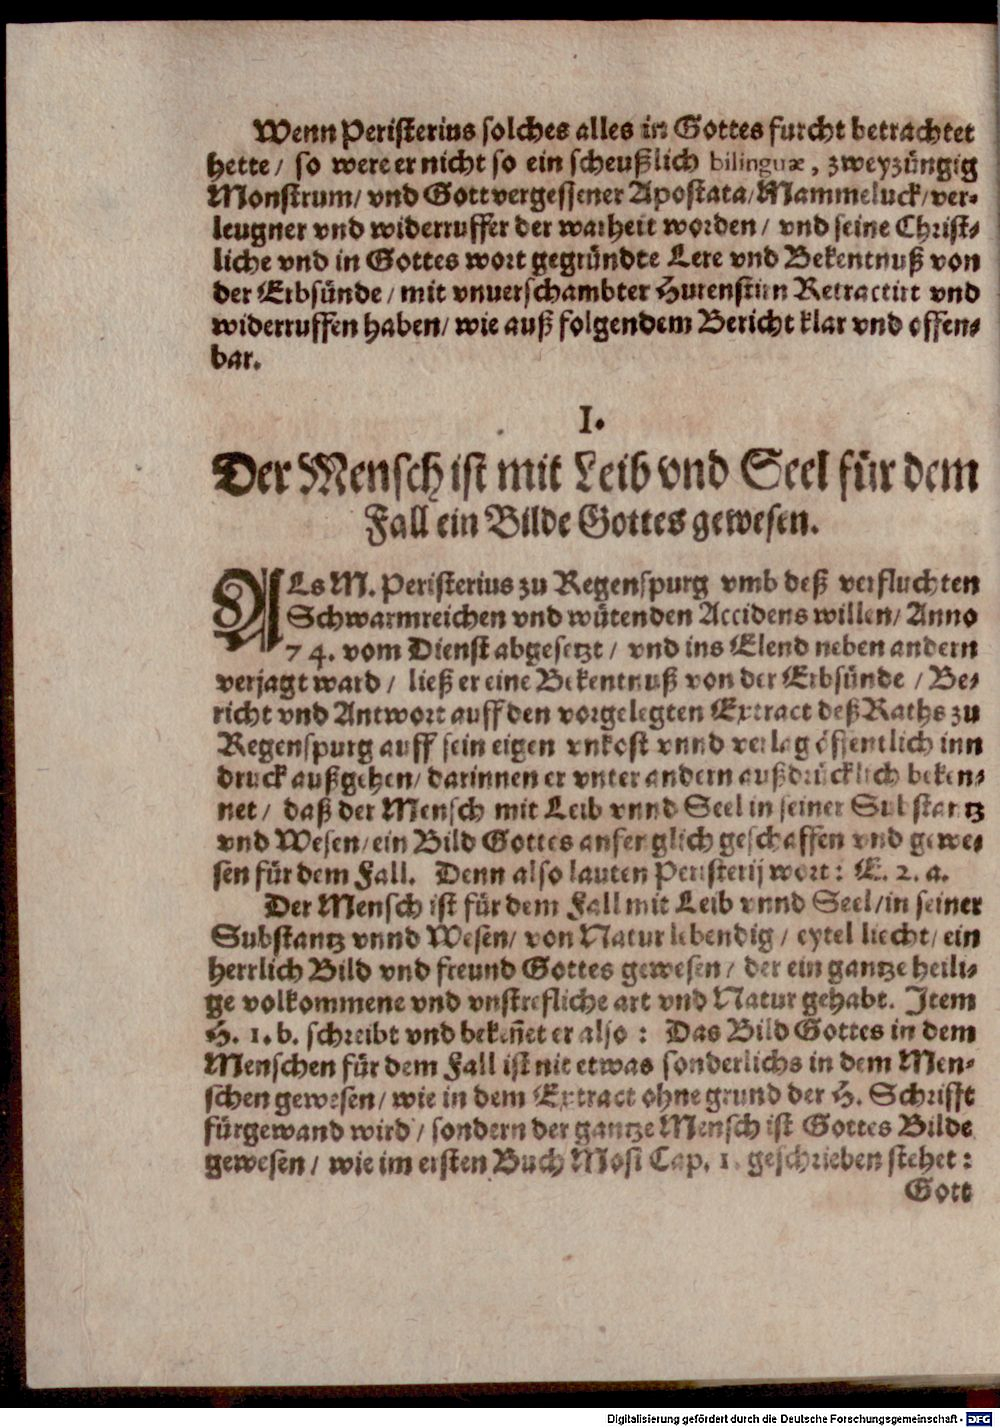 Wenn Peristerius solches alles in Gottes furcht betrachtet
hette / so were er nicht so ein scheußlich bilinguæ, zweyzüngig
Monstrum / vnd Gottvergessener Apostata / Mammeluck / ver-
leugner vnd widerruffer der warheit worden / vnd seine Christ-
liche vnd in Gottes wort gegründte Lere vnd Bekentnuß von
der Erbsünde / mit vnuerschambter Hurenstirn Retractirt vnd
widerruffen haben / wie auß folgendem Bericht klar vnd offen-
bar.
I.
Der Mensch ist mit Leib vnd Seel für dem
Fall ein Bilde Gottes gewesen.
ALs M. Peristerius zu Regenspurg vmb deß verfluchten
Schwarmreichen vnd wütenden Accidens willen / Anno
74. vom Dienst abgesetzt / vnd ins Elend neben andern
verjagt ward / ließ er eine Bekentnuß von der Erbsünde / Be-
richt vnd Antwort auff den vorgelegten Extract deß Raths zu
Regenspurg auff sein eigen vnkost vnnd verlag öffentlich inn
druck außgehen / darinnen er vnter andern außdrücklich beken-
net / daß der Mensch mit Leib vnnd Seel in seiner Substantz
vnd Wesen / ein Bild Gottes anfenglich geschaffen vnd gewe-
sen für dem Fall. Denn also lauten Peristerij wort: E. 2. a.
Der Mensch ist für dem Fall mit Leib vnnd Seel / in seiner
Substantz vnnd Wesen / von Natur lebendig / eytel liecht / ein
herrlich Bild vnd freund Gottes gewesen / der ein gantze heili-
ge volkommene vnd vnstrefliche art vnd Natur gehabt. Item
H. 1. b. schreibt vnd bekeñet er also : Das Bild Gottes in dem
Menschen für dem Fall ist nit etwas sonderlichs in dem Men-
schen gewesen / wie in dem Extract ohne grund der H. Schrifft
fürgewand wird / sondern der gantze Mensch ist Gottes Bilde
gewesen / wie im ersten Buch Mosi Cap. 1. geschrieben stehet :
Gott
Digitalisierung gefördert durch die Deutsche Forschungsgemeinschaft - DFG